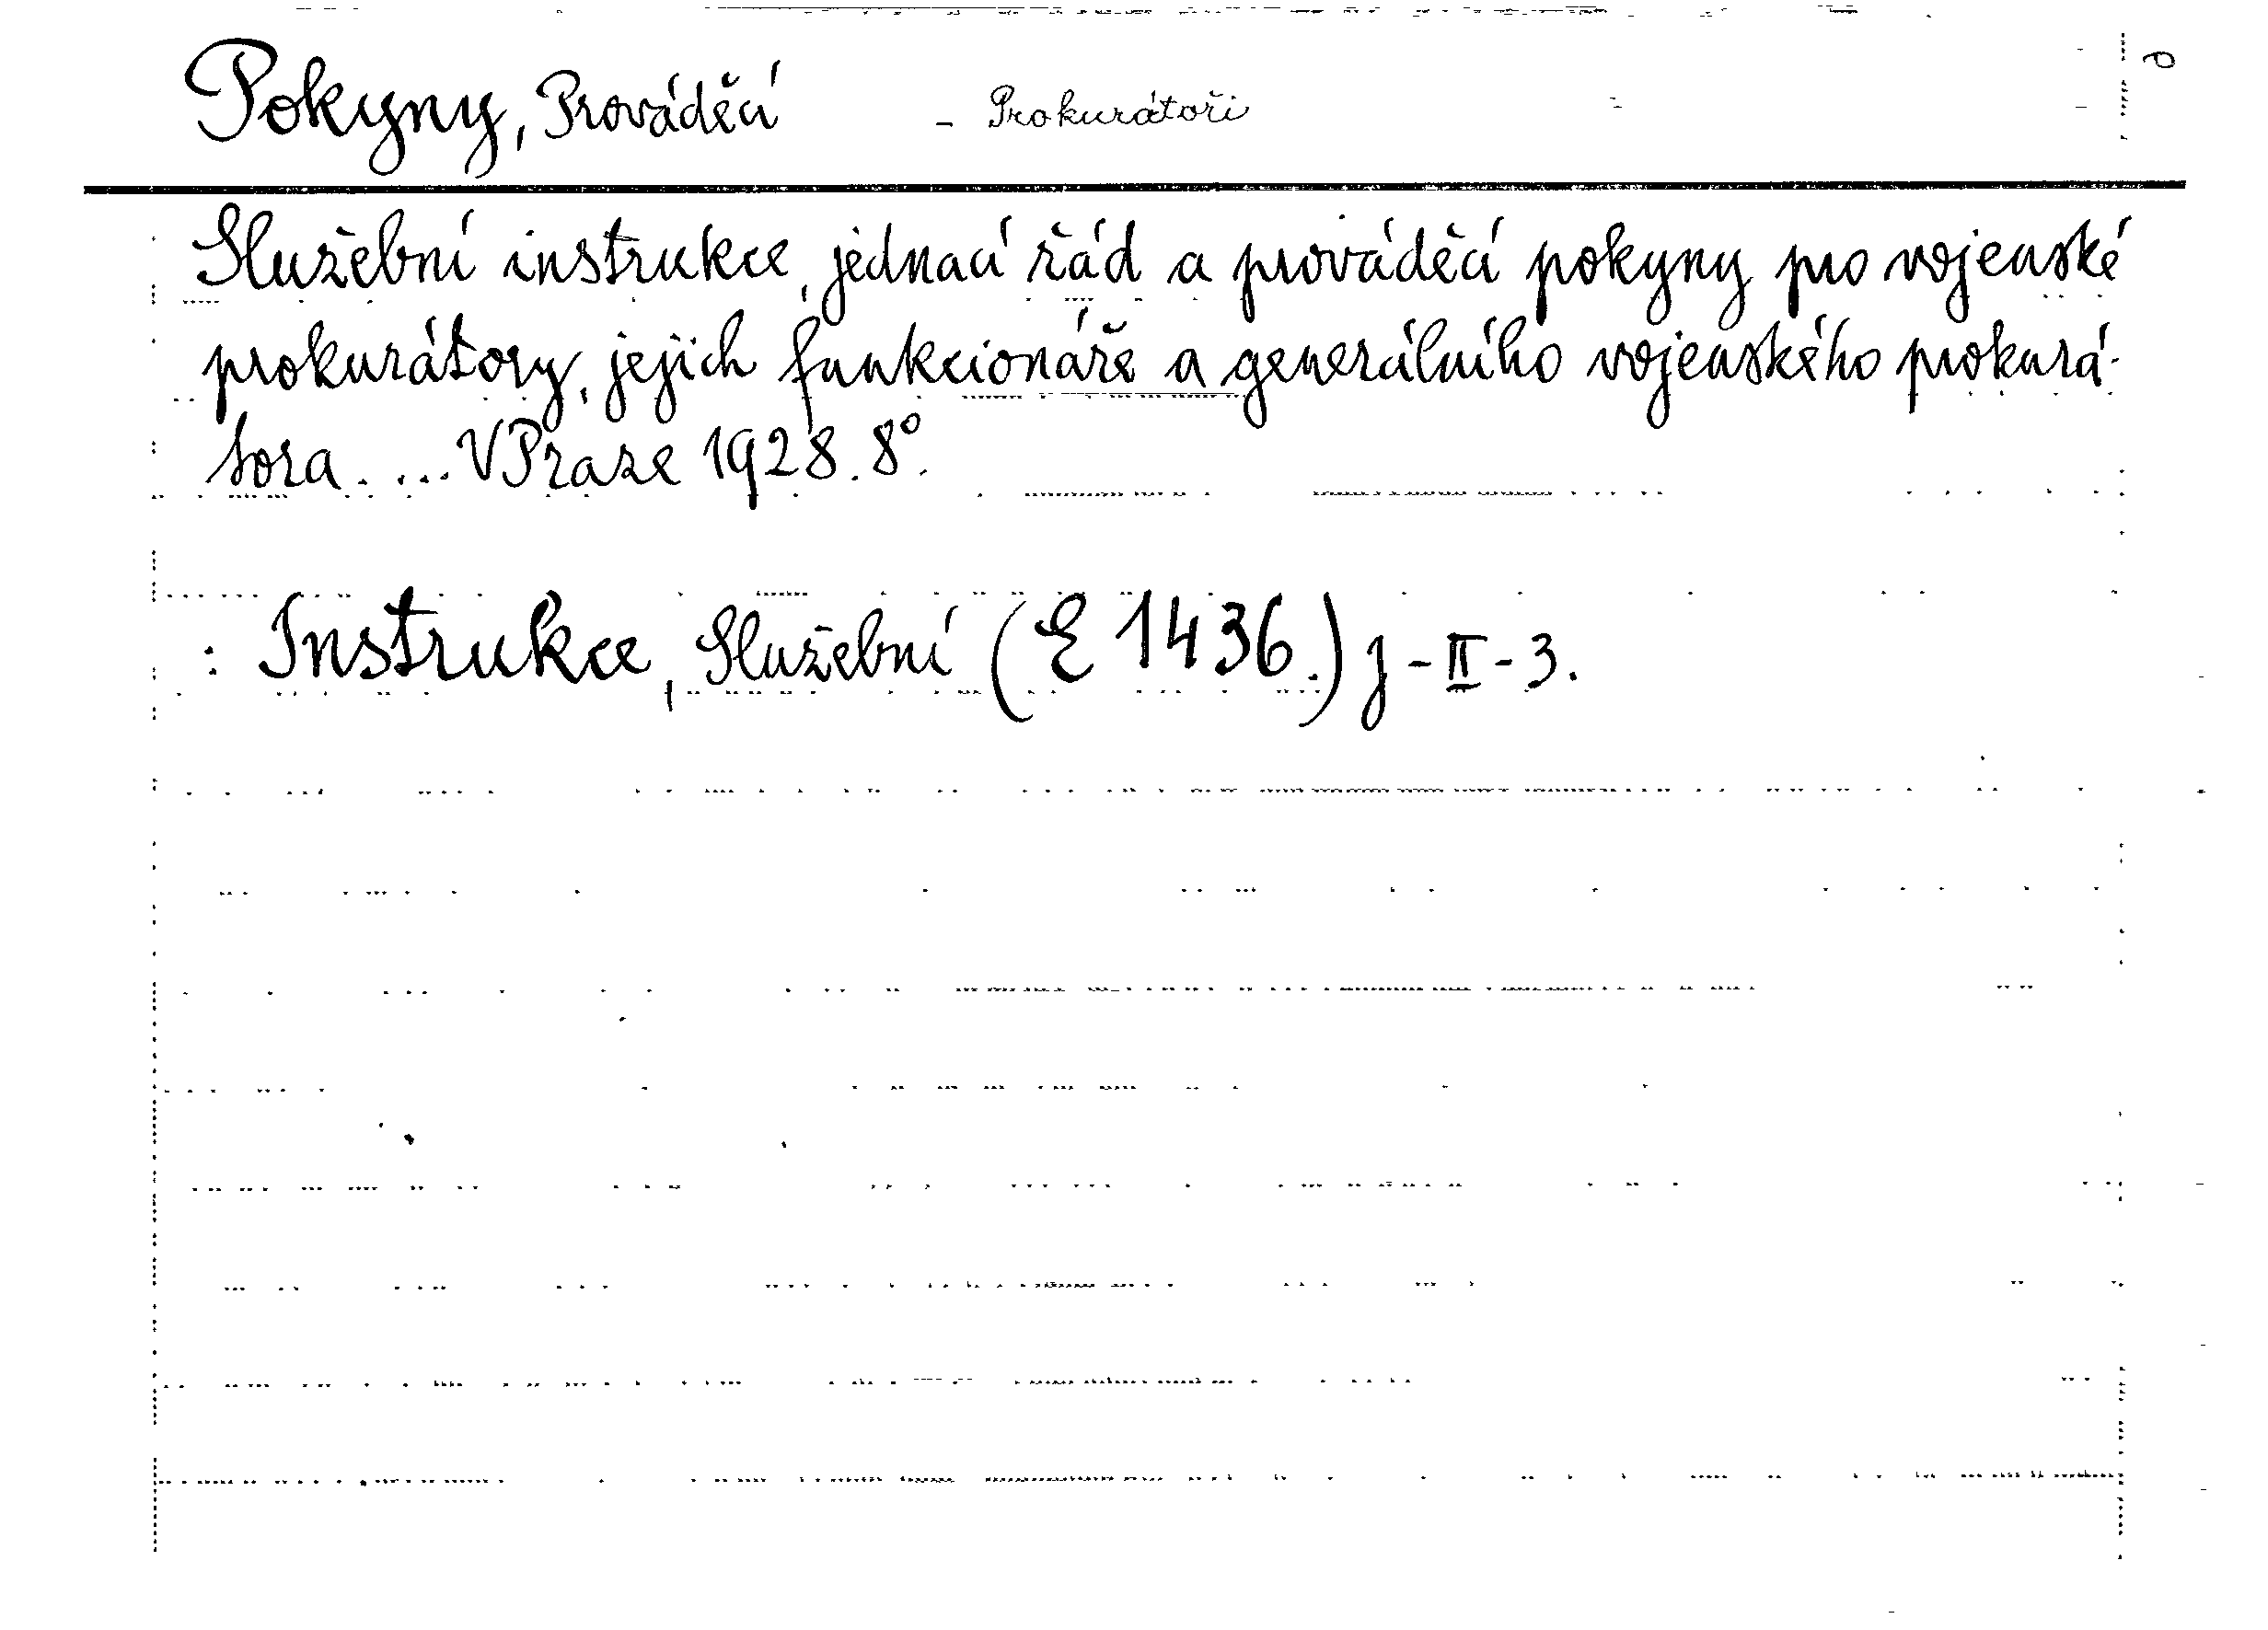 Pokyny, Prováděcí - Prokurátoři
Služební instrukce, jednací řád a prováděcí pokyny pro vojenské
prokurátory, jejich funkcionáře a generálního vojenského prokurá-
tora.... V Praze 1928. 8°.
: Instrukce, Služební (E 1436.) j-II-3.